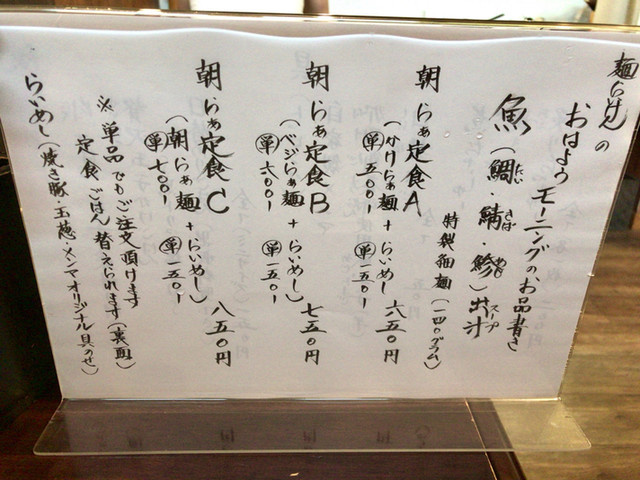 麺らいけんの
おはようモーニングのお品書き
魚(鯛・鯖・鯵)出汁
たい
さば
あじ
スープ
特製細麺(一四〇グラム)
朝らぁ定食A
(かけらぁ麺+らいめし)
六五〇円
単五〇〇-
単一五〇-
朝らぁ定食B
(ベジらぁ麺+らいめし)
七五〇円
単六〇〇-
単一五〇-
朝らぁ定食C
(朝らぁ麺+らいめし)
八五〇円
単七〇〇-
単一五〇-
※単品でもご注文頂けます
定食ごはん替えられます(裏面)
らいめし(焼き豚・玉葱・メンマオリジナル具のせ)